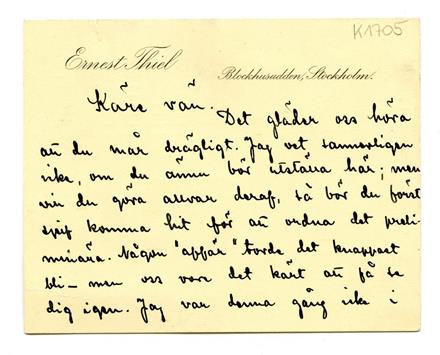 K1705
Ernest Thiel
Blockhusudden, Stockholm.
Käre vän.
Det gläder oss höra
att du mår drägligt. Jag vet sannerligen
icke, om du ännu bör utställa här; men
vill du göra allvar deraf, så bör du först
sjelf komma hit för att ordna det preli-
minära. Någon "affär" torde det knappast
bli – men oss vore det kärt att få se
dig igen. Jag var denna gång icke i